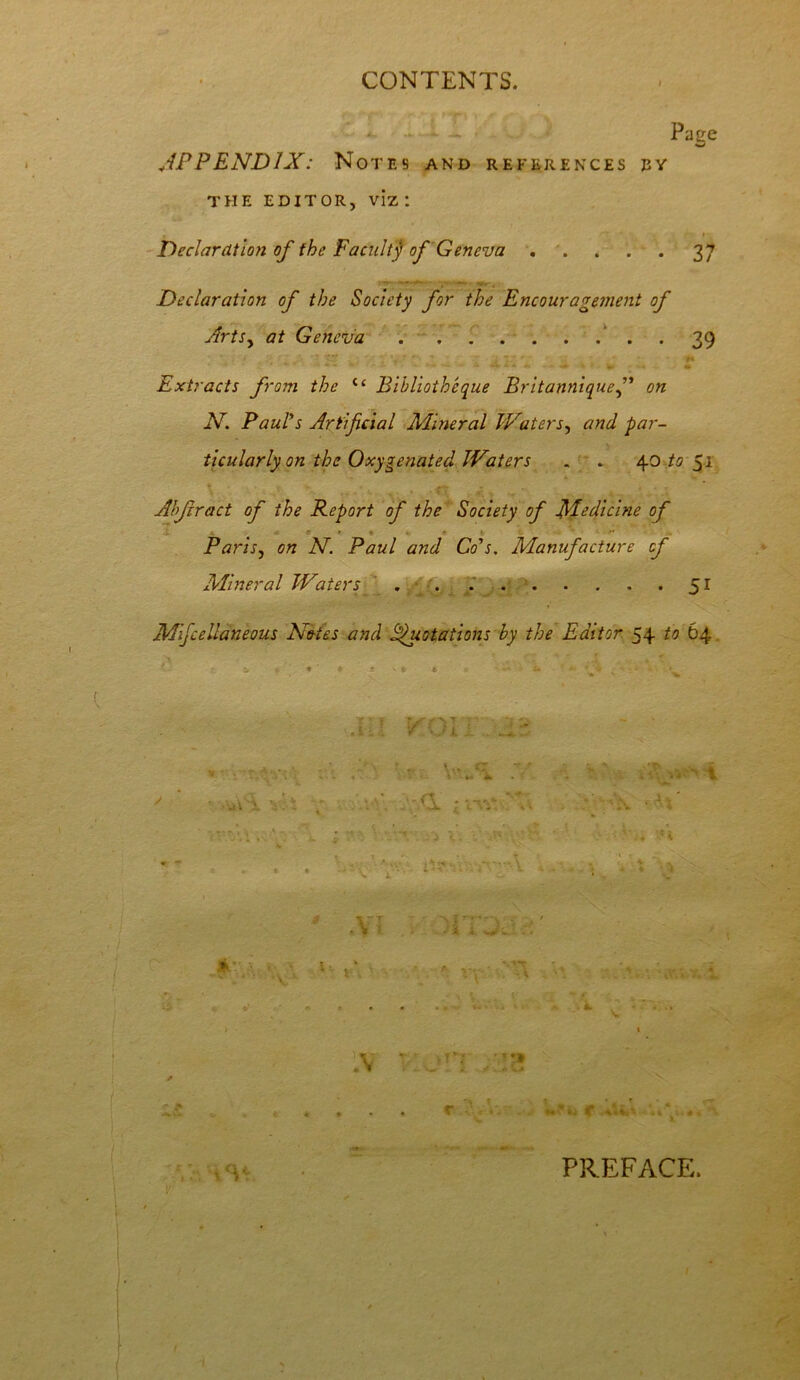 CONTENTS.
Page
APPENDIX: NOTES AND REFERENCES BY
THE EDITOR, viz:
Declaration of the Faculty of Geneva . . . . . 37
Declaration of the Society for the Encouragement of
Arts, at Geneva . . . . . . . . . 39
Extracts from the “ Bibliothéque Britannique,” on
N. Paul's Artificial Mineral Waters, and par-
ticularly on the Oxygenated Waters . . 40 to 51
Abſtract of the Report of the Society of Medicine of
Paris, on N. Paul and Co's. Manufacture of
Mineral Waters . . . . . . . . . . 51
Miſcellaneous Notes and Quotations by the Editor 54 to 64
PREFACE.